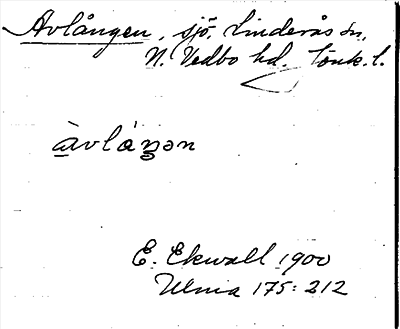 Avlången, sjö. Linderås sn.
N. Vedbo hd. Jönk. l.
àvláŋən
E. Ekwall 1900
Ulma 175:212